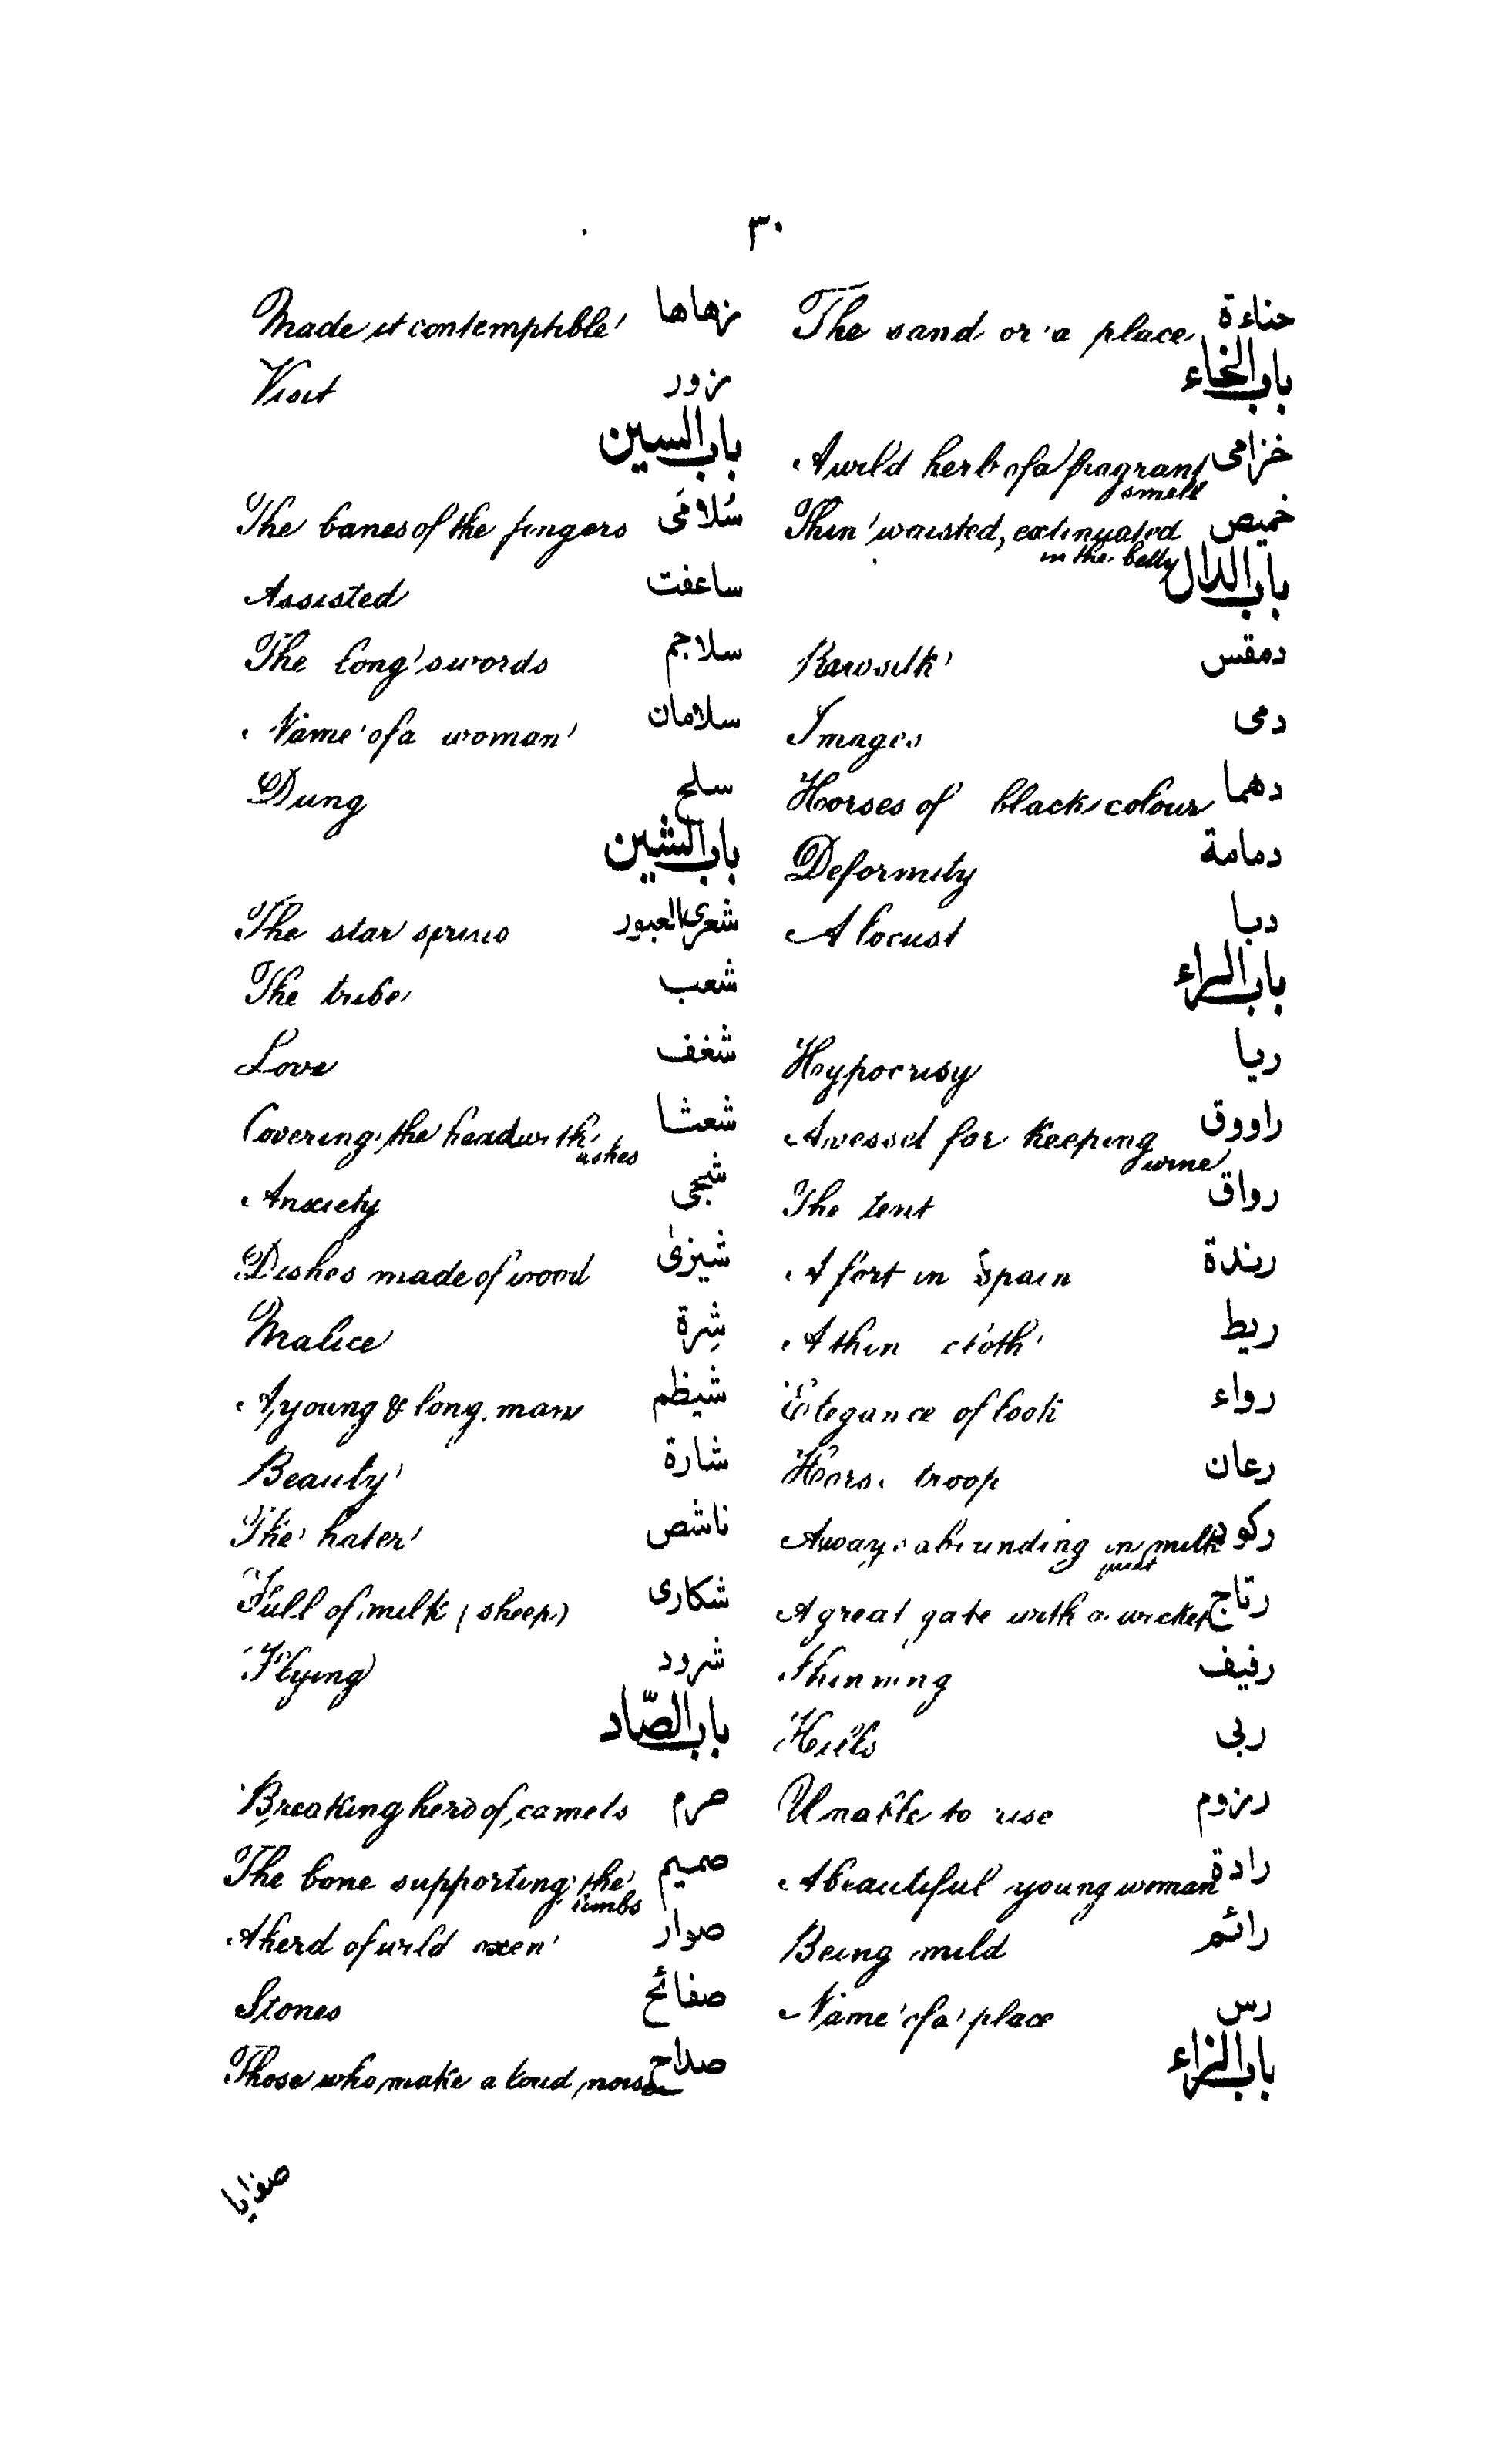 ٣٠
حناءة The sand or a place
باب الخاء
خزامى A wild herb of a fragrant
smell
خميص Thin waisted, extinuated
in the belly
باب الدال
دمقس Raw silk
دمى Images
دهما Horses of black colour
دمامة Deformity
دبا A locust
باب الراء
ريا Hypocrisy
راووق A vessel for keeping
wine
رواق The tent
رندة A fort in Spain
ريط A thin cloth
رواء Elegance of look
رعان Hors. troop
ركود Aways abounding in milk
رتاج A great gate with a wicket
رفيف Shinning
ربى Hills
رزوم Unable to rise
رادة A beautiful young woman
رائم Being mild
رس Name of a place
باب الزاء
زهاها Made it contemptible
زور Visit
باب السين
سُلامَى The banes of the fingers
ساعفت Assisted
سلاجم The long swords
سلامان Name of a woman
سلح Dung
باب الشين
شعرى العبور The star sprius
شعب The tribe
شغف Love
شعثا Covering the head with
ashes
شجى Anxiety
شيزى Dishes made of wood
شِرة Malice
شيظم A young & long man
شارة Beauty
ناشص The hater
شكارى Full of milk (sheep)
شرود Flying
باب الصّاد
صرم Breaking herd of camels
صميم The bone supporting the
limbs
صوار A herd of wild oxen
صفائح Stones
صلاح Those who make a loud noise
صفايا